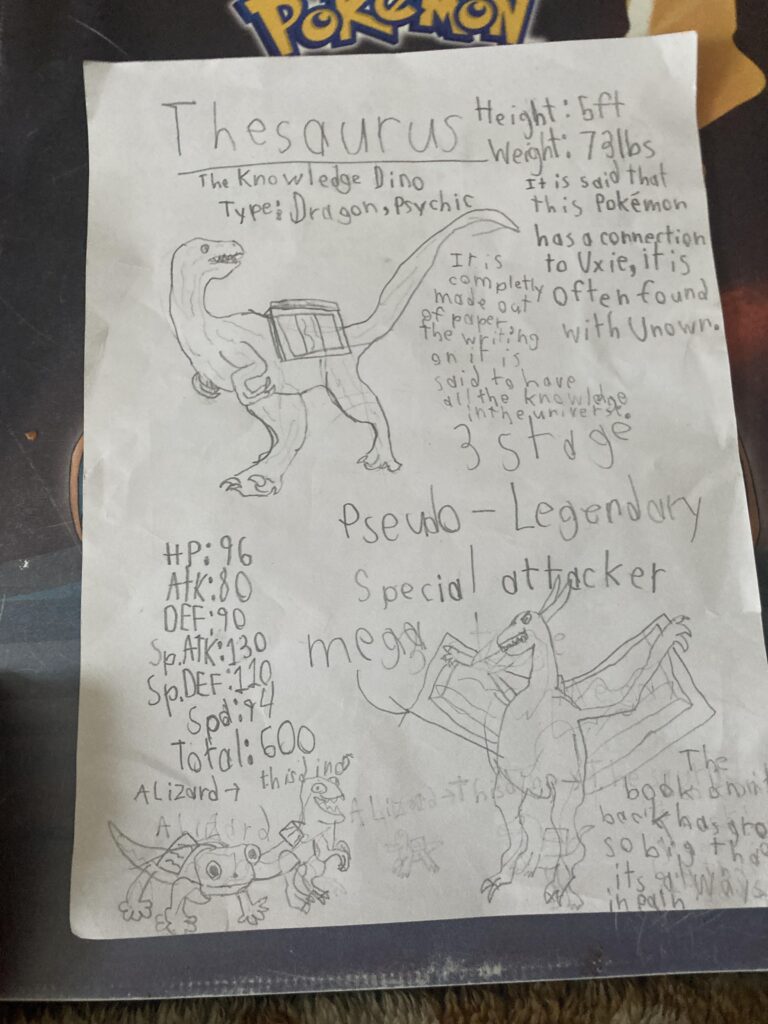 POKÉMON
Thesaurus
The Knowledge Dino
Type: Dragon, Psychic
Height: 5ft
Weight: 73lbs
It is said that
this Pokémon
has a connection
to Uxie, it is
often found
with Unown.
It is
completly
made out
of paper,
the writing
on it is
said to have
all the knowledge
in the universe.
3 stage
Pseudo-Legendary
Special attacker
mega
HP: 96
Atk: 80
DEF: 90
Sp.Atk: 130
Sp.DEF: 110
Spd: 94
Total: 600
A Lizard →
this dino
A Lizard
A Lizard →
The
book on it
back has gro
so big tha
its always
in pain